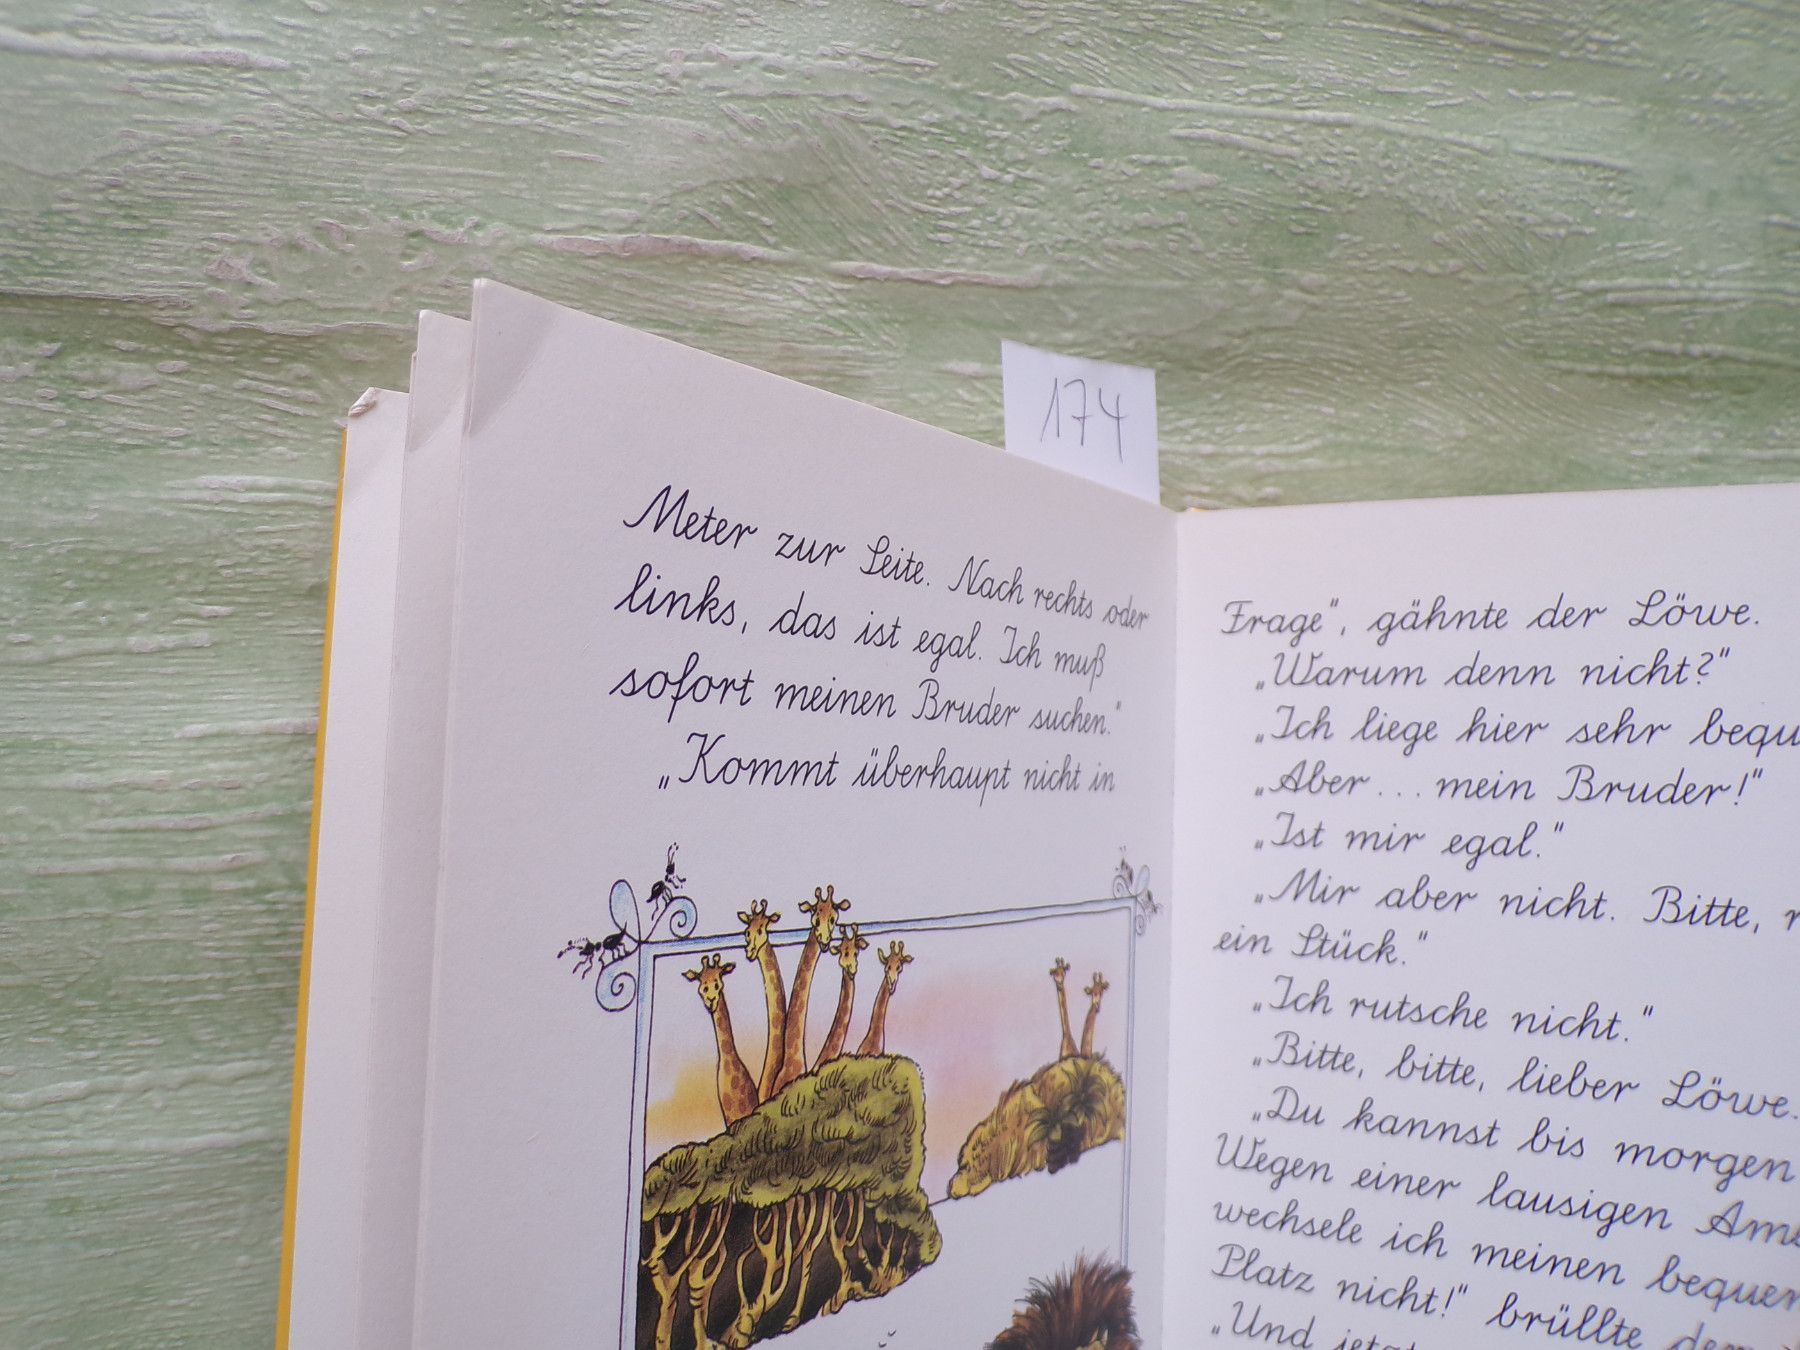 174
Meter zur Seite. Nach rechts oder
links, das ist egal. Ich muß
sofort meinen Bruder suchen."
„Kommt überhaupt nicht in
Frage", gähnte der Löwe.
„Warum denn nicht?"
„Ich liege hier sehr
„Aber... mein Bruder!"
„Ist mir egal."
„Mir aber nicht. Bitte,
ein Stück."
„Ich rutsche nicht."
„Bitte, bitte, lieber Löwe.
„Du kannst bis morgen
Wegen einer lausigen
wechsele ich meinen
Platz nicht!" brüllte
„Und jetzt